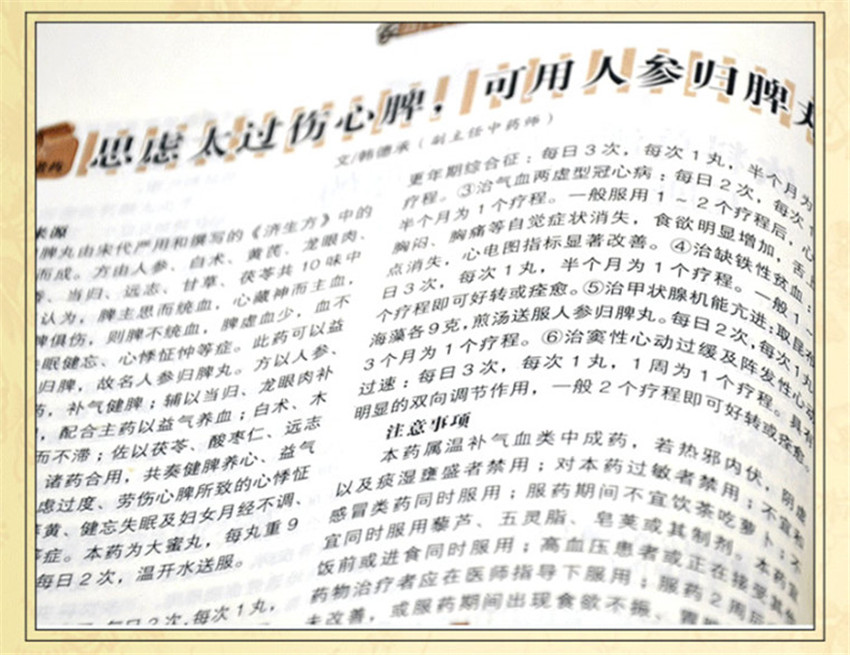 思虑太过伤心脾，可用人参归脾
文/韩德承（副主任中药师）
来源
脾丸由宋代严用和撰写的《济生方》中的
而成。方由人参、白术、黄芪、龙眼肉、
、当归、远志、甘草、茯苓共10味中
认为，脾主思而统血，心藏神而主血，
脾俱伤，则脾不统血，脾虚血少，血不
眠健忘、心悸怔忡等症。此药可以益
归脾，故名人参归脾丸。方以人参、
，补气健脾；辅以当归、龙眼肉补
，配合主药以益气养血；白术、木
而不滞；佐以茯苓、酸枣仁、远志
诸药合用，共奏健脾养心、益气
虑过度、劳伤心脾所致的心悸怔
黄、健忘失眠及妇女月经不调、
症。本药为大蜜丸，每丸重9
每日2次，温开水送服。
每日2次，每次1丸，
更年期综合征：每日3次，每次1丸，半个月为
疗程。③治气血两虚型冠心病：每日2次，每次1
半个月为1个疗程。一般服用1～2个疗程后，心
胸闷、胸痛等自觉症状消失，食欲明显增加，舌上
点消失，心电图指标显著改善。④治缺铁性贫血：
日3次，每次1丸，半个月为1个疗程。一般1
个疗程即可好转或痊愈。⑤治甲状腺机能亢进：取昆布
海藻各9克，煎汤送服人参归脾丸。每日2次，每次1丸
3个月为1个疗程。⑥治窦性心动过缓及阵发性心动
过速：每日3次，每次1丸，1周为1个疗程。具有
明显的双向调节作用，一般2个疗程即可好转或痊愈。
注意事项
本药属温补气血类中成药，若热邪内伏，阴虚
以及痰湿壅盛者禁用；对本药过敏者禁用；不宜和
感冒类药同时服用；服药期间不宜饮茶吃萝卜；不
宜同时服用藜芦、五灵脂、皂荚或其制剂。本药宜
饭前或进食同时服用；高血压患者或正在接受其他
药物治疗者应在医师指导下服用；服药2周后
未改善，或服药期间出现食欲不振、胃